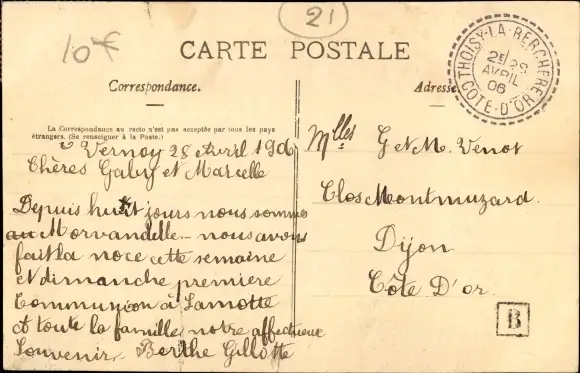 21
10f
CARTE POSTALE
THOISY-LA-BERCHERE
28
AVRIL
06
CÔTE-D'OR
Correspondance.
Adresse
La Correspondance au recto n'est pas acceptée par tous les pays
étrangers. (Se renseigner à la Poste.)
Vernoy 28 Avril 1906
Chères Gaby et Marcelle
Depuis huit jours nous sommes
au Morvandelle - nous avons
fait la noce cette semaine
et dimanche premiere
Communion à Lamotte
A toute la famille notre affectueux
Souvenir. Berthe Gillotte
Mlles G et M. Venot
Clos Montmuzard.
Dijon
Côte D'or.
B